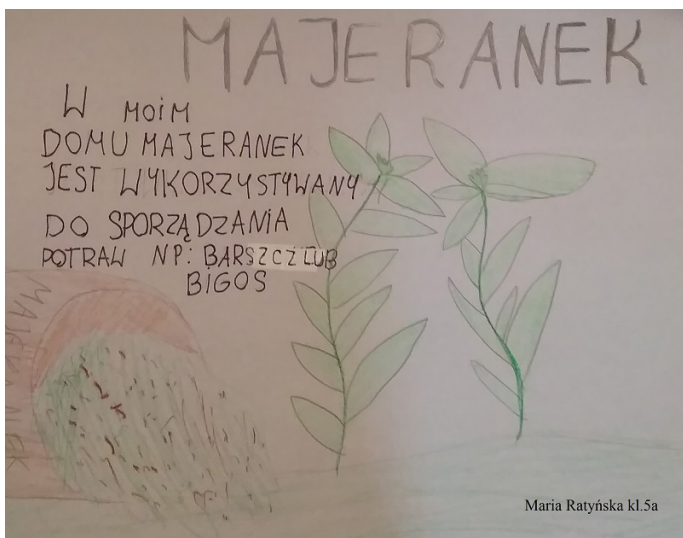 MAJERANEK
W MOiM
DOMU MAJERANEK
JEST WYKORZYSTYWANY
DO SPORZĄDZANiA
POTRAW NP: BARSZCZ LUB
BiGOS
MAJERANEK
Maria Ratyńska kl.5a